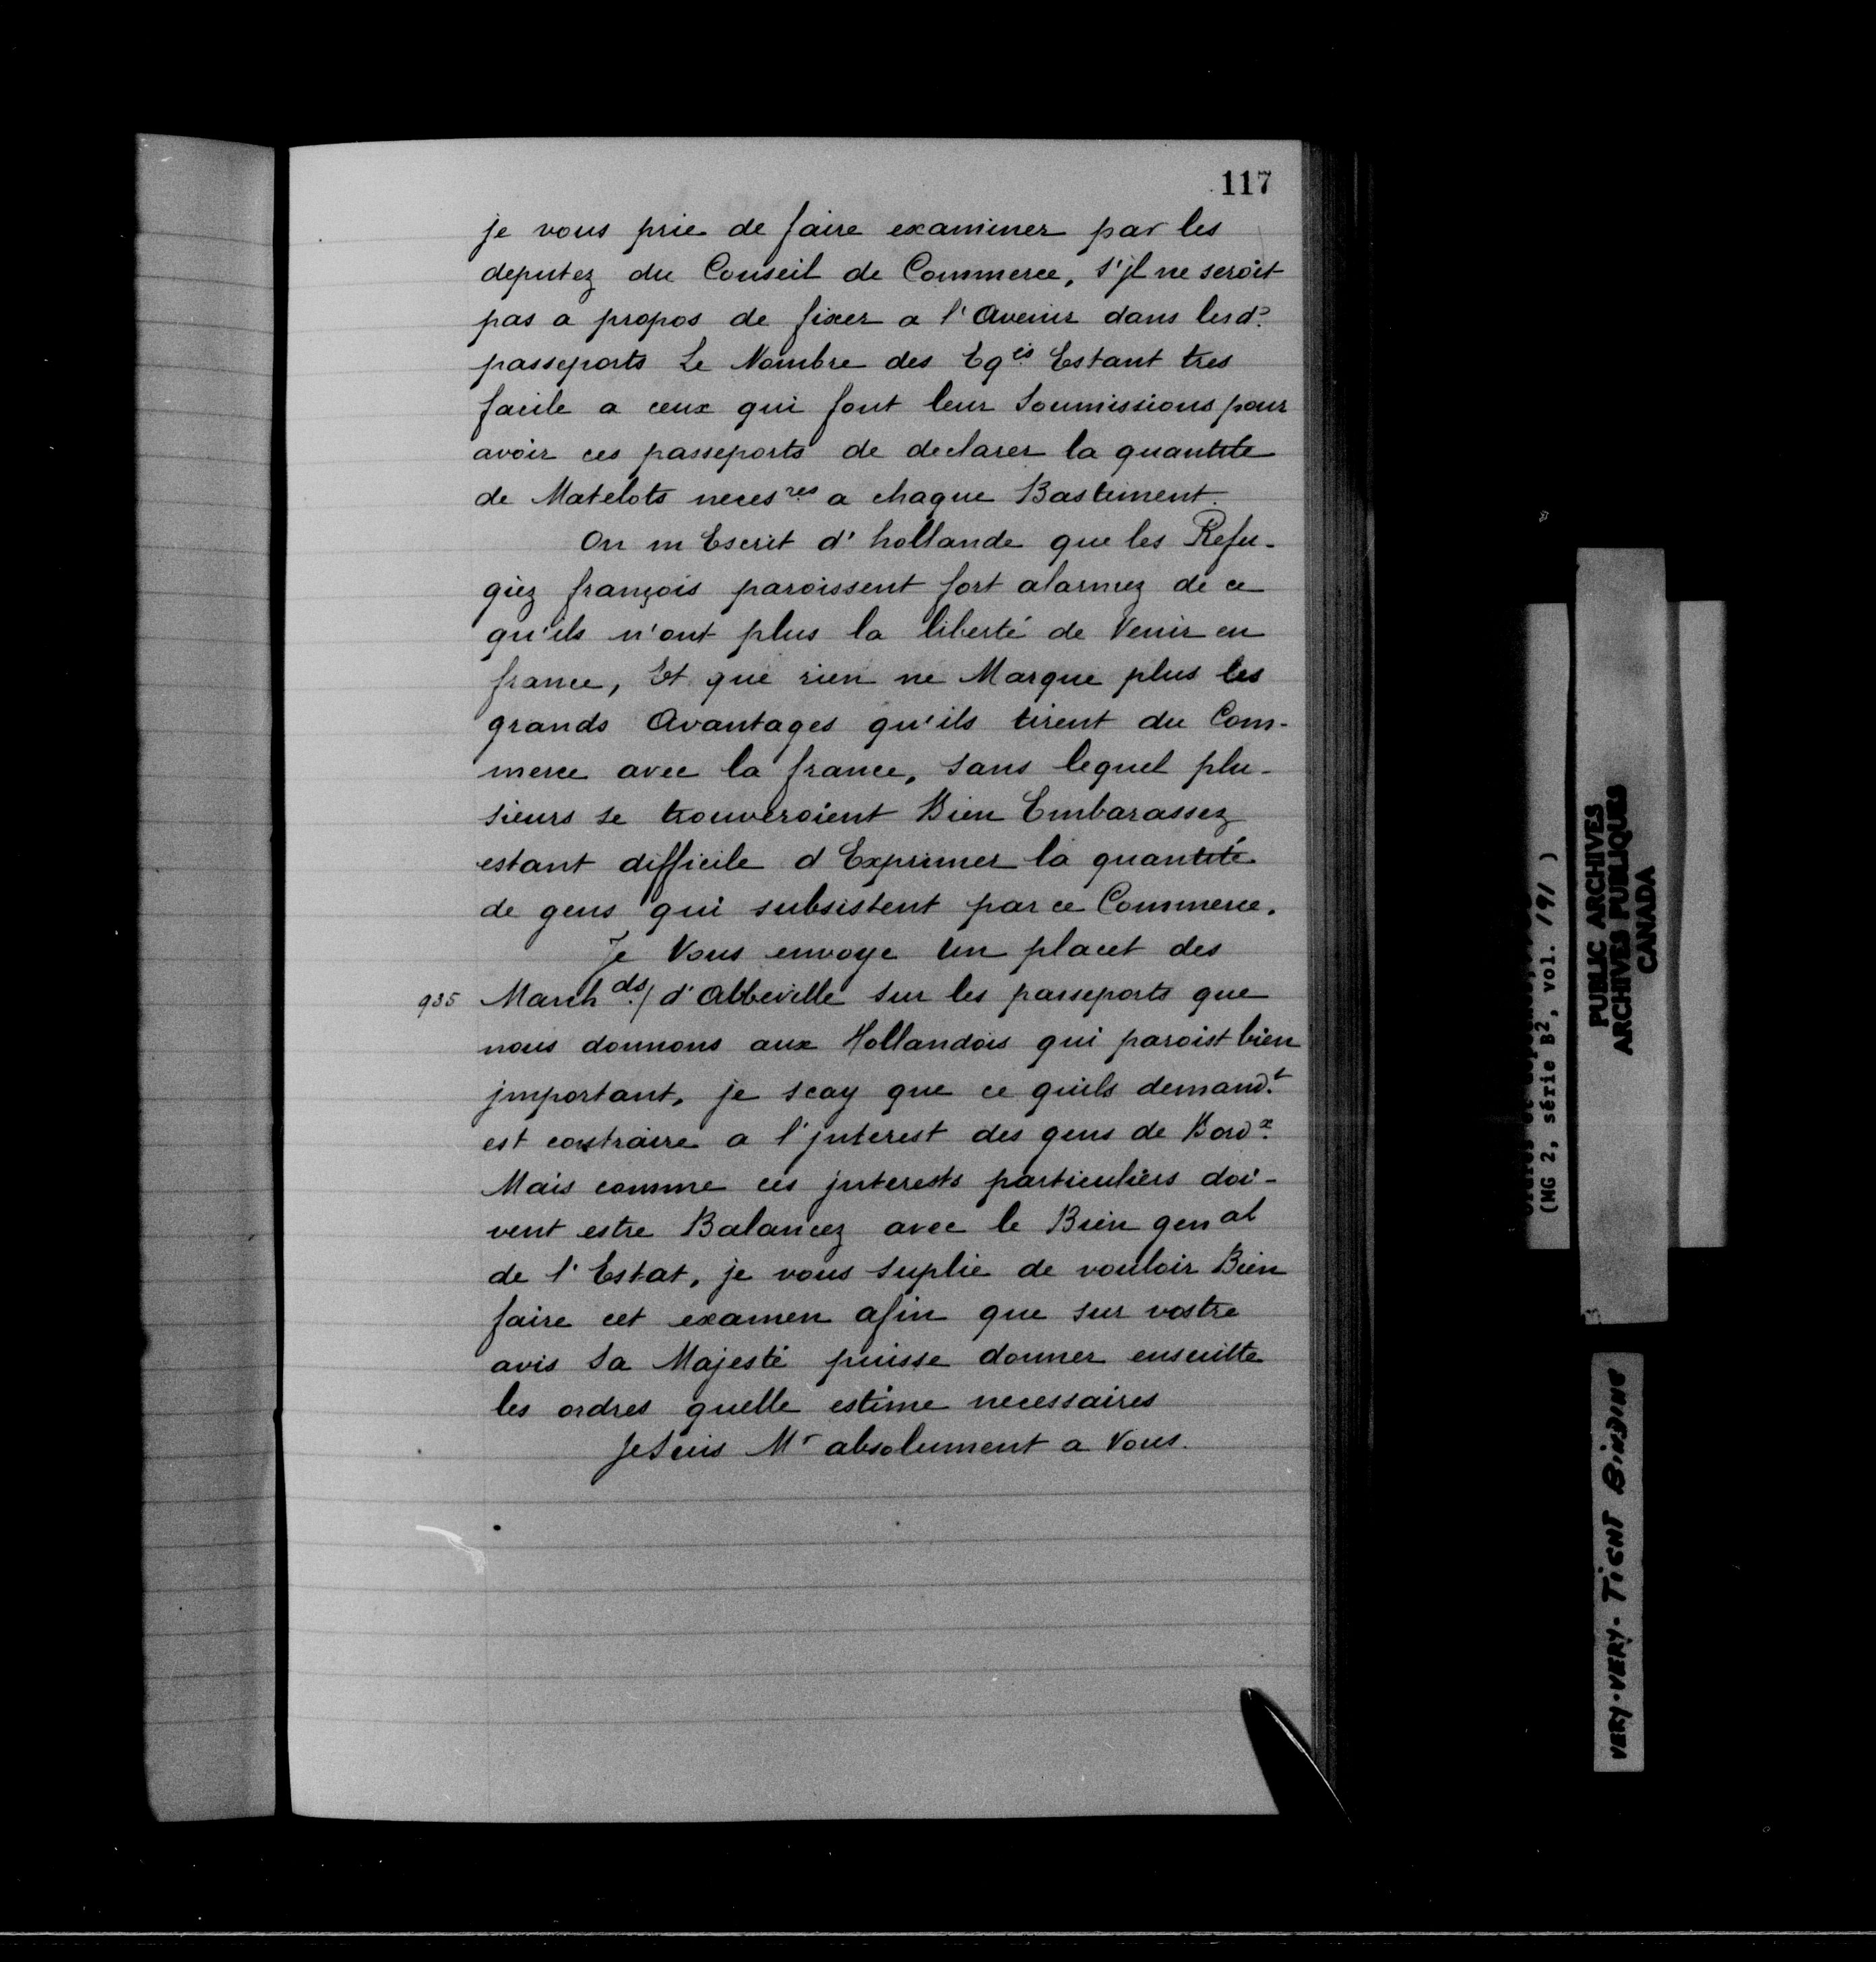 117
je vous prie de faire examiner par les
deputez du Conseil de Commerce, s'jl ne seroit
pas a propos de fixer a l'Avenir dans lesd.
passeports Le Nombre des Eq.es Estant tres
facile a ceux qui font leur Soumissions pour
avoir ces passeports de declarer la quantite
de Matelots neces.res a chaque Bastiment.
On m Escrit d'hollande que les Refu-
giez françois paroissent fort alarmez de ce
qu'ils n'ont plus la liberté de Venir en
france, Et que rien ne Marque plus les
grands Avantages qu'ils tirent du Com-
merce avec la france, sans lequel plu-
sieurs se trouveroient Bien Embarassez
estant difficile d Exprimer la quantité
de gens qui subsistent par ce Commerce.
Je Vous envoye un placet des
935 March.ds/ d'Abbeville sur les passeports que
nous donnons aux Hollandois qui paroist bien
jmportant, je scay que ce quils demand.t
est contraire a l'jnterest des gens de Bord.x
Mais comme ces jnterests particuliers doi-
vent estre Balancez avec le Bien genal
de l'Estat, je vous suplie de vouloir Bien
faire cet examen afin que sur vostre
avis Sa Majesté puisse donner ensuitte
les ordres quelle estime necessaires
Je Suis Mr absolument a Vous.
(MG 2, série B2, vol. 191 )
PUBLIC ARCHIVES
ARCHIVES PUBLIQUES
CANADA
VERY-VERY-TIGHT BINDING